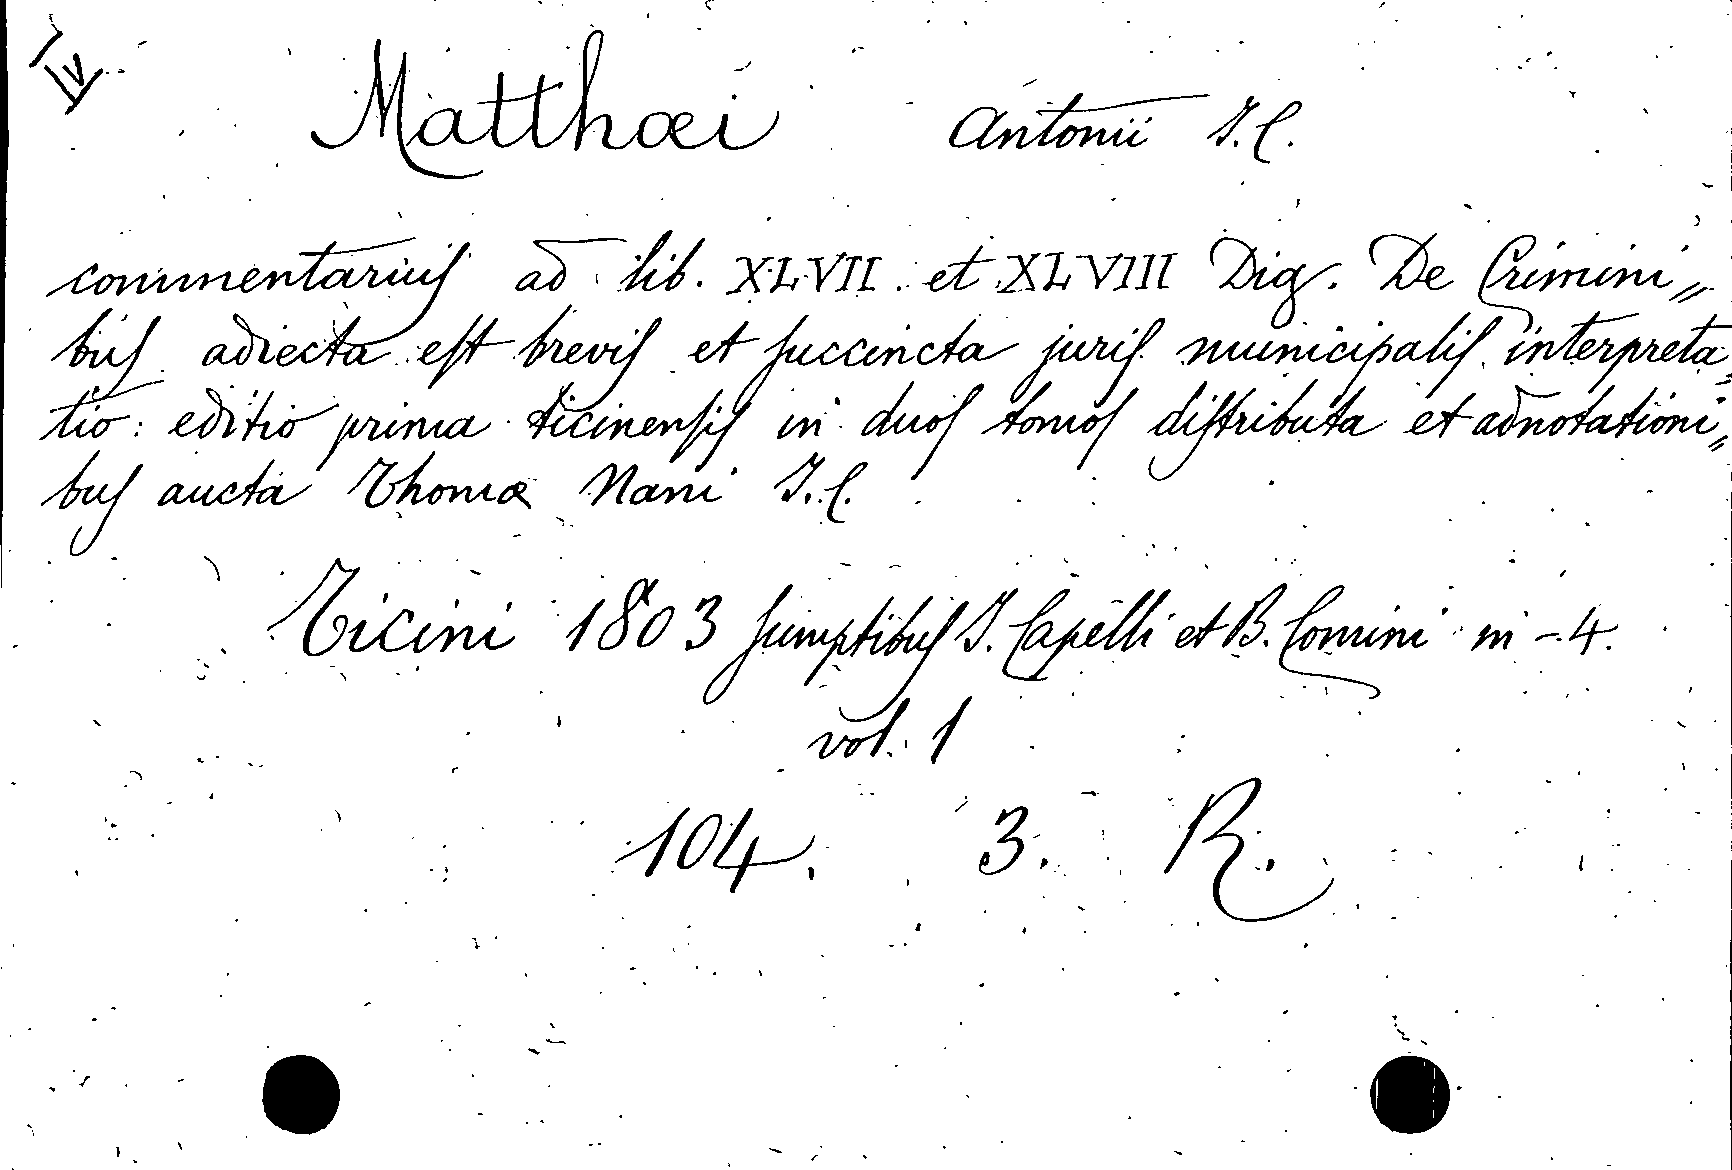 IV
Matthæi Antonii J.C.
commentarius ad lib. XLVII et XLVIII Dig. De Crimini„
bus adiecta est brevis et succincta juris municipalis interpreta„
tio: editio prima ticinensis in duos tomos distributa et adnotationi„
bus aucta Thomæ Nani J.C.
Ticini 1803 sumptibus J. Capelli et B. Comini in-4.
vol. 1
104. 3. R.